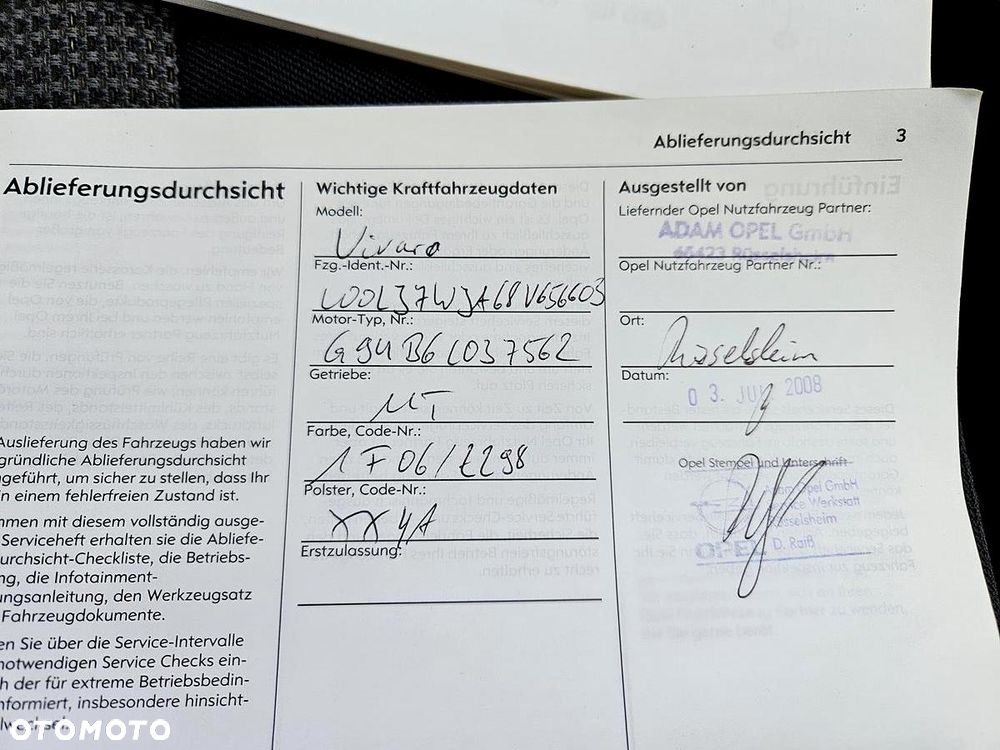 Ablieferungsdurchsicht 3
Ablieferungsdurchsicht
Auslieferung des Fahrzeugs haben wir
gründliche Ablieferungsdurchsicht
geführt, um sicher zu stellen, dass Ihr
in einem fehlerfreien Zustand ist.
mmen mit diesem vollständig ausge-
Serviceheft erhalten sie die Abliefe-
urchsicht-Checkliste, die Betriebs-
ng, die Infotainment-
ungsanleitung, den Werkzeugsatz
Fahrzeugdokumente.
en Sie über die Service-Intervalle
notwendigen Service Checks ein-
h der für extreme Betriebsbedin-
nformiert, insbesondere hinsicht-
Wichtige Kraftfahrzeugdaten
Modell:
Vivaro
Fzg.-Ident.-Nr.:
W0LJ7WJA68V656603
Motor-Typ, Nr.:
G9UB6C037562
Getriebe:
MT
Farbe, Code-Nr.:
1F06/Z298
Polster, Code-Nr.:
XX4A
Erstzulassung:
Ausgestellt von
Liefernder Opel Nutzfahrzeug Partner:
ADAM OPEL GmbH
65423 Rüsselsheim
Opel Nutzfahrzeug Partner Nr.:
Ort:
Rüsselsheim
Datum:
0 3. 2008
Opel Stempel und Unterschrift
Adam Opel GmbH
Service Werkstatt
Rüsselsheim
OPEL D. Raiß
OTOMOTO